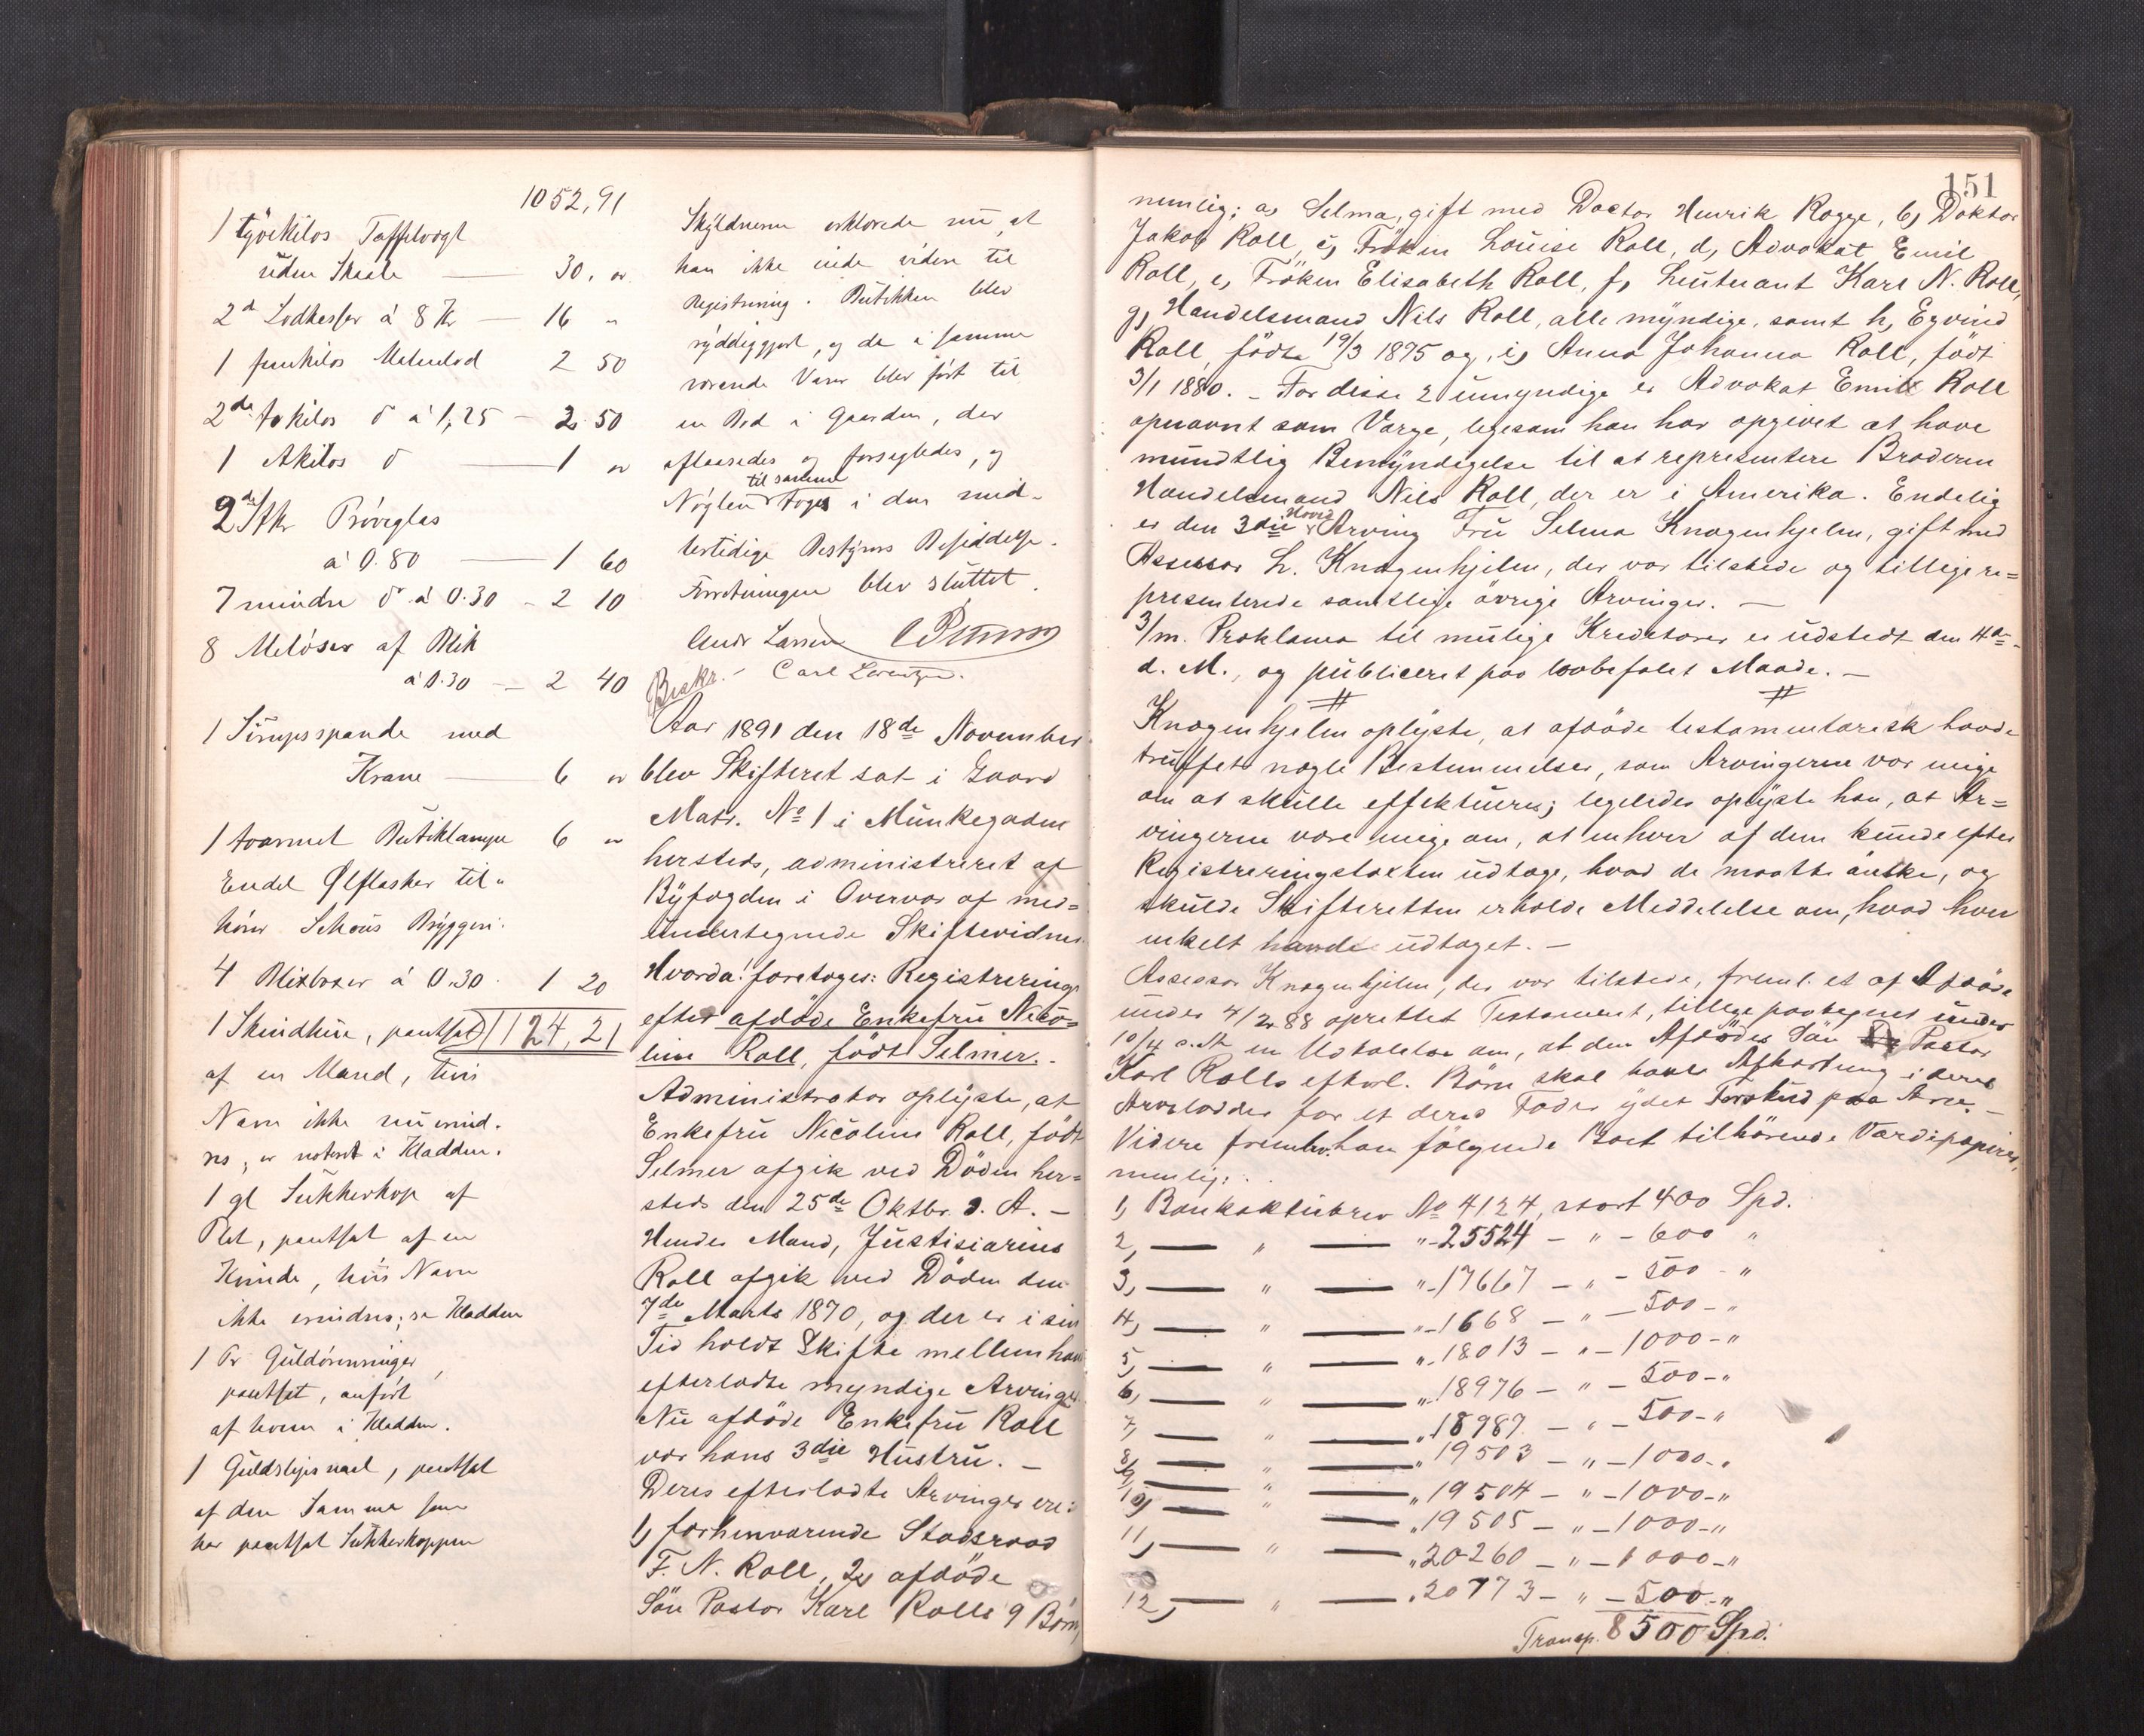 1052,91
1 tyvekilos Taffelvægt
uden Skaale — 30, "
2de Lodkasser à 8 Kr — 16 "
1 femkilos Metallod 2 50
2de tokilos do à 1,25 — 2. 50
1 Akilos do — 1 "
2de Stk Prøveglas
à 0.80 — 1 60
7 mindre do à 0.30 — 2 10
8 Meløser af Blik
à 0.30 — 2 40
1 Sirupsspande med
Krane — 6 "
1 toarmet Butiklampe 6 "
Endel Ølflasker til-
hører Schous Bryggeri.
4 Blikboxer à 0.30. 1 20
1 Skindhue, pantsat 1124,21
af en Mand, hvis
Navn ikke nu erind-
res, er noteret i Kladden.
1 gl Sukkerkop af
Plet, pantsat af en
Kvinde, hvis Navn
ikke erindres; se Kladden
1 Pr Guldørenringer,
pantsat, anført
af hvem i Kladden.
1 Guldslyisnaal, pantsat
af den Samme som
har pantsat Sukkerkoppen
Skyldneren erklærede nu, at
han ikke eiede videre til
Registrering. Butikken blev
ryddiggjort, og de i samme
værende Varer blev ført til
en Bod i Gaarden, der
aflaasedes og forsegledes, og
til samme
Nøglen toges i den mid-
lertidige Bestyrers Besiddelse.
Forretningen blev sluttet.
Andr Larsen
Beskr. — Carl Lorentzen.
Aar 1891 den 18de November
blev Skifteret sat i Gaard
Matr. No 1 i Munkegaden
hersteds, administreret af
Byfogden i Overvær af med-
undertegnede Skiftevidner.
Hvorda! foretoges: Registrering
efter afdøde Enkefru Nico-
line Roll, født Selmer.
Administrator oplyste, at
Enkefru Nicoline Roll, født
Selmer afgik ved Døden her-
steds den 25de Oktbr. d. A. —
Hendes Mand, Justisiarius
Roll afgik ved Døden den
7de Marts 1870, og der er i sin
Tid holdt Skifte mellem hans
efterladte myndige Arvinger.
Nu afdøde Enkefru Roll
var hans 3die Hustru. —
Deres efterladte Arvinger ere:
1, forhenværende Stadsraad
F. N. Roll, 2, afdøde
Søn Pastor Karl Rolls 9 Børn,
151
nemlig: a, Selma, gift med Doctor Henrik Rogge, b, Doktor
Jakob Roll, c, Frøken Louise Roll, d, Advokat Emil
Roll, e, Frøken Elisabeth Roll, f, Leutenant Karl N. Roll,
g, Handelsmand Nils Roll, alle myndige, samt h, Eyvind
Roll, født 19/3 1875 og, i, Anna Johanna Roll, født
3/1 1880. — For disse 2 umyndige er Advokat Emil Roll
opnævnt som Værge, ligesom han har opgivet at have
mundtlig Bemyndigelse til at representere Broderen
Handelsmand Nils Roll, der er i Amerika. Endelig
Hoved
er den 3die Arving Fru Selma Knagenhjelm, gift med
Assessor L. Knagenhjelm, der var tilstede og tillige re-
presenterede samtlige øvrige Arvinger. —
3/m. Proklama til mulige Kreditorer er udstedt den 4de
d. M., og publiceret paa lovbefalet Maade. —
Knagenhjelm oplyste, at afdøde testamentarisk havde
truffet nogle Bestemmelser, som Arvingerne var enige
om at skulle effektueres; ligeledes oplyste han, at Ar-
vingerne vare enige om, at enhver af dem kunde efter
Registreringstaxten udtage, hvad de maatte ønske, og
skulde Skifteretten erholde Meddelelse om, hvad hver
enkelt havde udtaget. —
Assessor Knagenhjelm, der var tilstede, freml. et af Afdøde
under 4/2 88 oprettet Testament, tillige paategnet under
10/4 s. A. en Udtalelse om, at den Afdødes Søn Pastor
Karl Rolls efterl. Børn skal have Afkortning i deres
Arvelodder for et deres Fader ydet Forskud paa Arv. —
Videre fremlev. han følgende Boet tilhørende Værdipapirer,
nemlig:
1, Bankaktiebrev No 4124, stort 400 Spd.
2, — " — "-25524 — " — 600 "
3, — " — "-17667 — " — 500 — "
4, — " — "-1668 — " — 500 — "
5, — " — "-18013 — " — 1000 — "
6, — " — "-18976 — " — 500 — "
7, — " — "18987 — " — 500 — "
8, — " — "19503 — " — 1000 — "
9, — " — "19504 — " — 1000 — "
10, — " — "19505 — " — 1000 — "
11, — " — "20260 — " — 1000 — "
12, — " — "20773 — " — 500 — "
Transp. 8500 Spd.